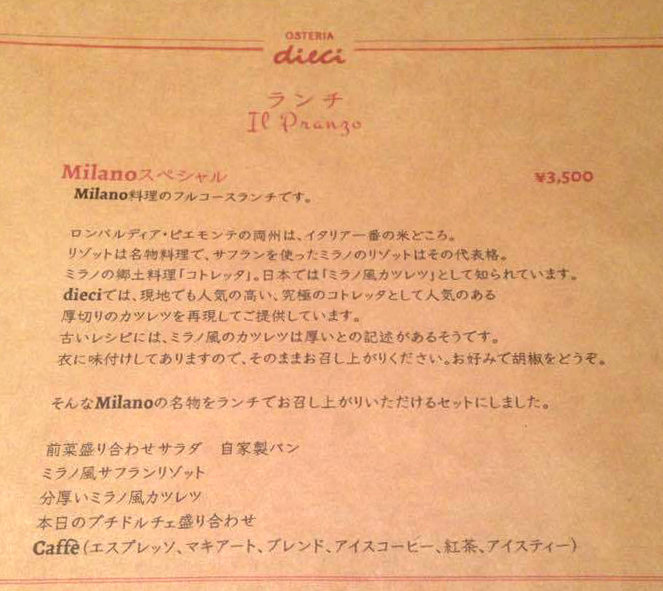 OSTERIA
dieci
ランチ
Il Pranzo
Milanoスペシャル ¥3,500
Milano料理のフルコースランチです。
ロンバルディア・ピエモンテの両州は、イタリア一番の米どころ。
リゾットは名物料理で、サフランを使ったミラノのリゾットはその代表格。
ミラノの郷土料理「コトレッタ」。日本では「ミラノ風カツレツ」として知られています。
dieciでは、現地でも人気の高い、究極のコトレッタとして人気のある
厚切りのカツレツを再現してご提供しています。
古いレシピには、ミラノ風のカツレツは厚いとの記述があるそうです。
衣に味付けしてありますので、そのままお召し上がりください。お好みで胡椒をどうぞ。
そんなMilanoの名物をランチでお召し上がりいただけるセットにしました。
前菜盛り合わせサラダ 自家製パン
ミラノ風サフランリゾット
分厚いミラノ風カツレツ
本日のプチドルチェ盛り合わせ
Caffè(エスプレッソ、マキアート、ブレンド、アイスコーヒー、紅茶、アイスティー)